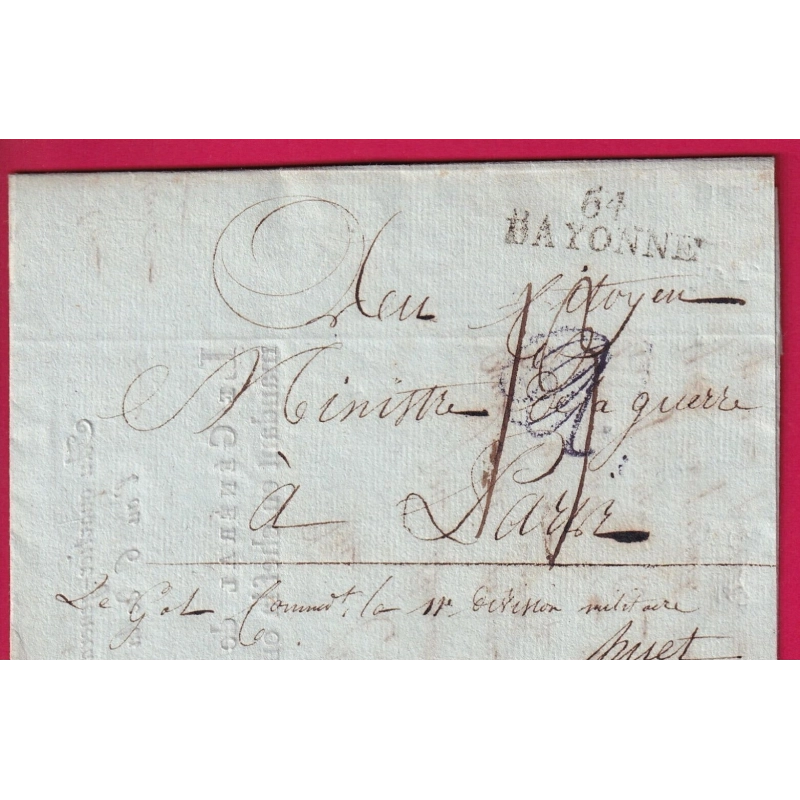 64
BAYONNE
Au Citoyen
Ministre de la guerre
à Paris
Le Gal Commdt. la 11e Division militaire
huet